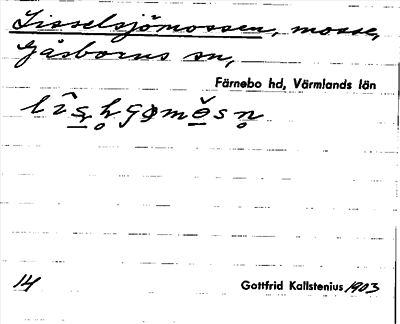 Sisselsjömossen, mosse,
Gåsborns sn,
Färnebo hd, Värmlands län
14
Gottfrid Kallstenius 1903